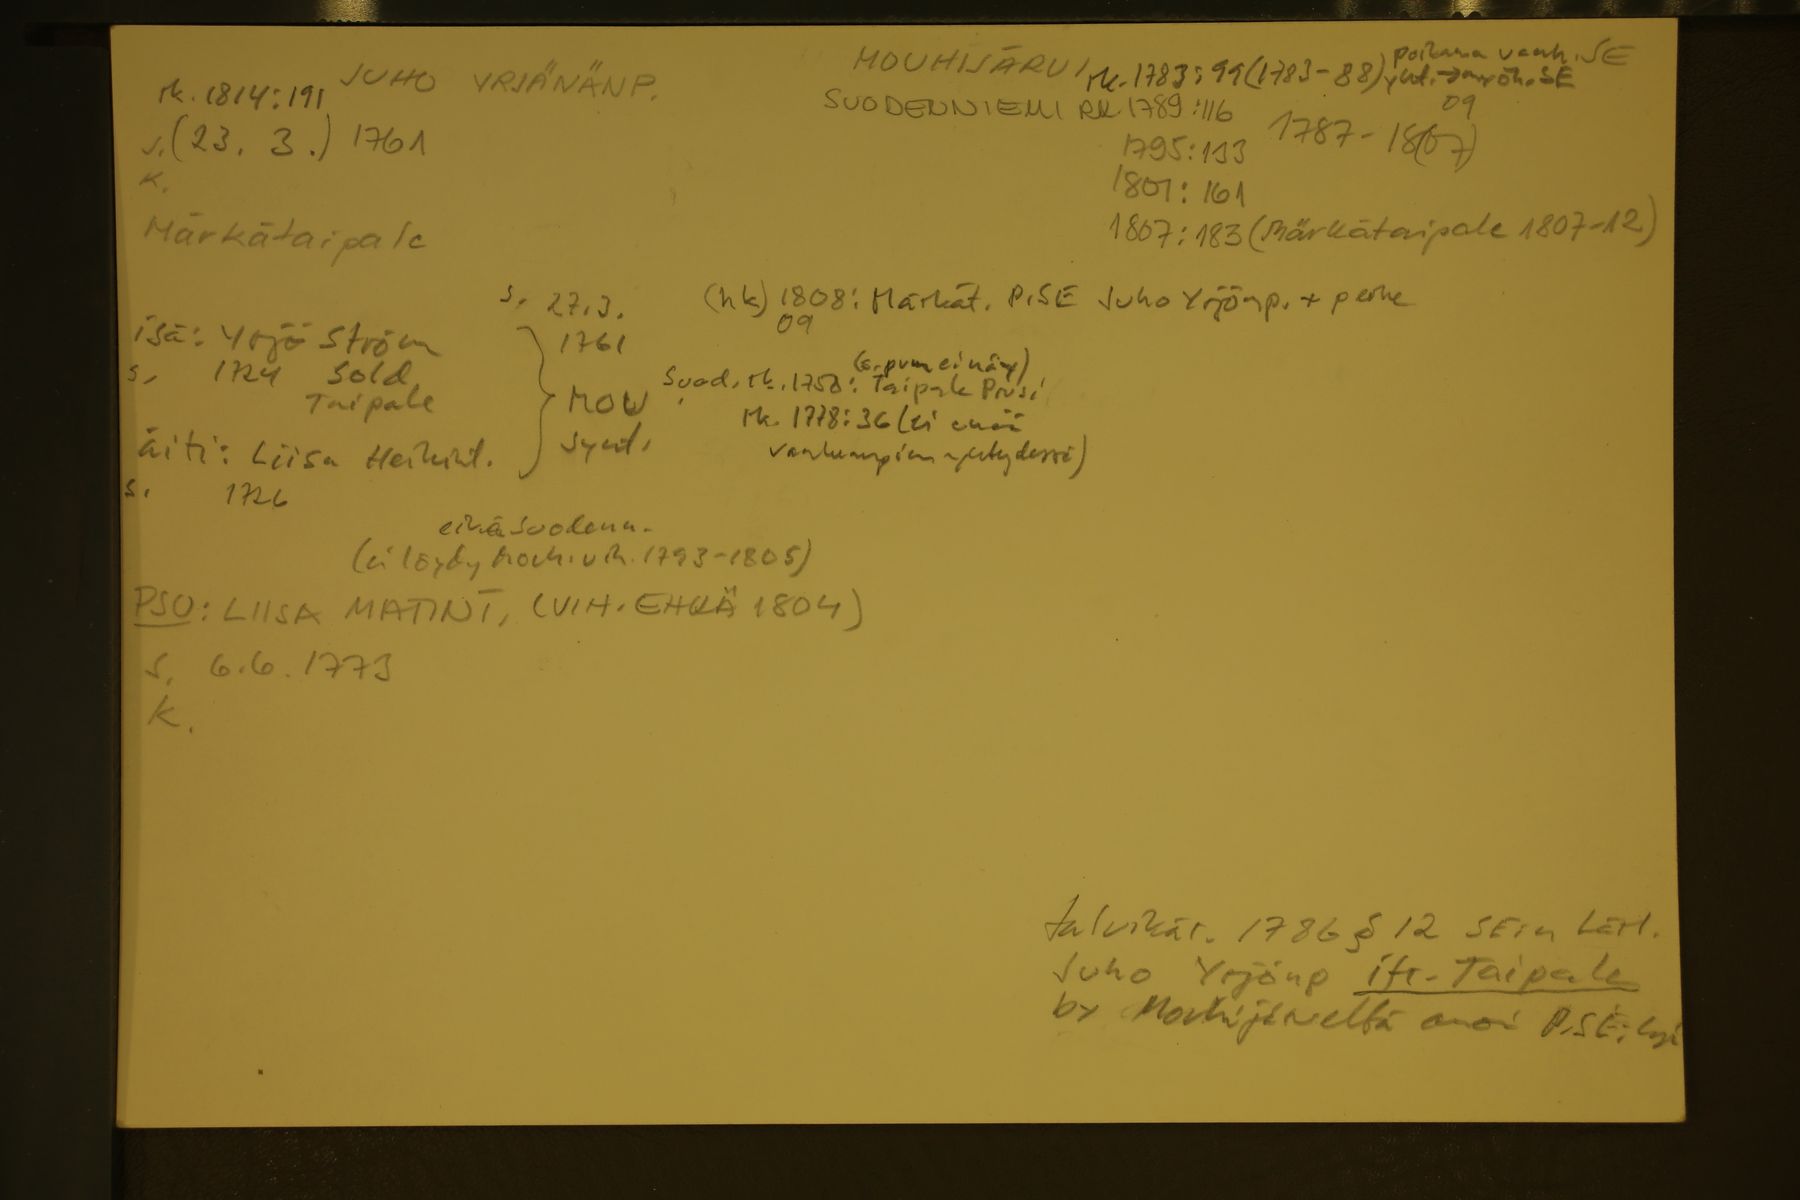 JUHO YRJÄNÄNP.
rk. 1814:191
s. (23. 3.) 1761
k.
Märkätaipale
MOUHIJÄRVI rk. 1783:99 (1783-88) poikana vanh. SE
SUODENNIEMI RK. 1789:116
1795:133 1787-18(07) 09
1801:161
1807:183 (Märkätaipale 1807-12)
(hk) 1808: Märkät. P.SE Juho Yrjönp. + perhe
09
isä: Yrjö Ström
s. 1724 Sold.
Taipale
äiti: Liisa Heikint.
s. 1726
s. 27.3.
1761
MOU
synt.
(s. pvm ei näy)
Suod. rk. 1750: Taipale
rk. 1778:36 (ei enää
vanhempien yhteydessä)
eikä Suodenn.
(ei löydy Mouh. vih. 1793-1805)
PSO: LIISA MATINT. (VIH. EHKÄ 1804)
s. 6.6. 1773
k.
talvikär. 1786 § 12
Juho Yrjönp ifr. Taipale
by anoi P.SE:ksi